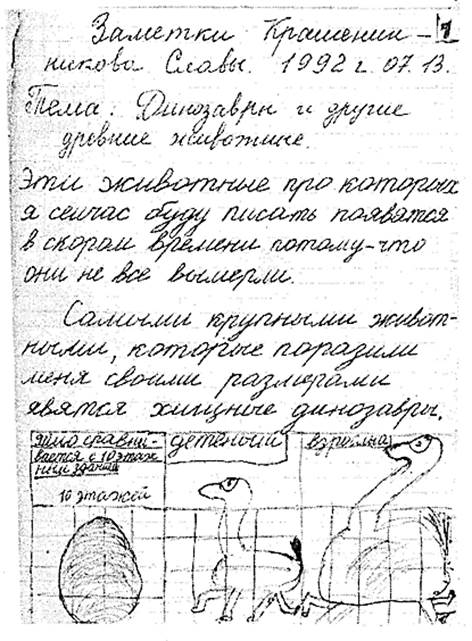 Заметки Крашенин- 1
никова Славы. 1992 г. 07. 13.
Тема: Динозавры и другие
древние животние.
Эти животные про которых
я сейчас буду писать появятся
в скором времени потому-что
они не все вымерли.
Самыми крупными живот-
ными, которые поразили
меня своими размерами
явятся хищные динозавры.
сравни-
вается с 10 этаж
ным зданием
10 этажей
детеныш
взрослый